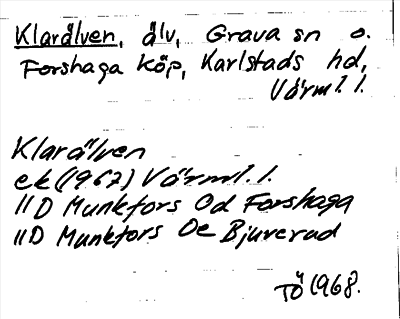 Klarälven, älv, Grava sn o.
Forshaga köp, Karlstads hd,
Värml. l.
Klarälven
ek (1967) Värml. l.
11D Munkfors 0d Forshaga
11D Munkfors 0e Bjurerud
TÖ 1968.